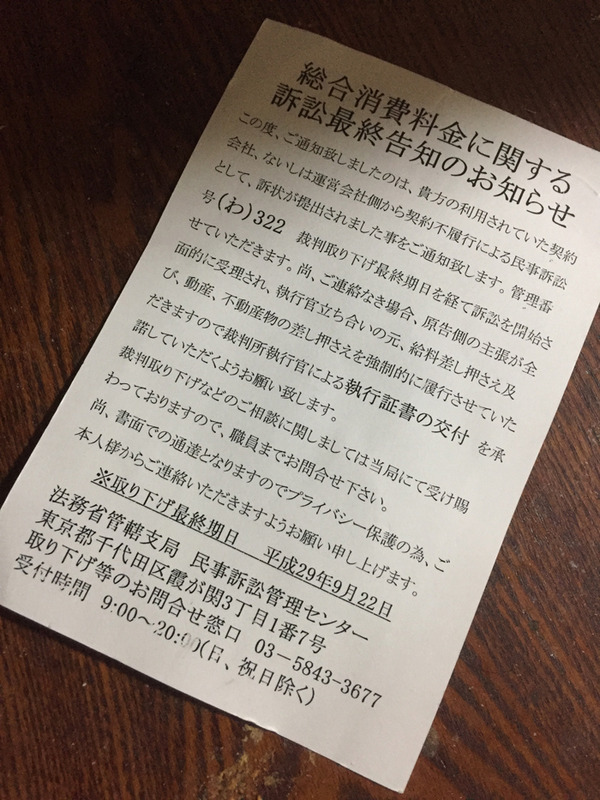 総合消費料金に関する
訴訟最終告知のお知らせ
この度、ご通知致しましたのは、貴方の利用されていた契約
会社、ないしは運営会社側から契約不履行による民事訴訟
として、訴状が提出されました事をご通知致します。管理番
号(わ)322 裁判取り下げ最終期日を経て訴訟を開始さ
せていただきます。尚、ご連絡なき場合、原告側の主張が全
面的に受理され、執行官立ち合いの元、給料差し押さえ及
び、動産、不動産物の差し押さえを強制的に履行させていた
だきますので裁判所執行官による執行証書の交付 を承
諾していただくようお願い致します。
裁判取り下げなどのご相談に関しましては当局にて受け賜
わっておりますので、職員までお問合せ下さい。
尚、書面での通達となりますのでプライバシー保護の為、ご
本人様からご連絡いただきますようお願い申し上げます。
※取り下げ最終期日 平成29年9月22日
法務省管轄支局 民事訴訟管理センター
東京都千代田区霞が関3丁目1番7号
取り下げ等のお問合せ窓口 03-5843-3677
受付時間 9:00~20:00(日、祝日除く)